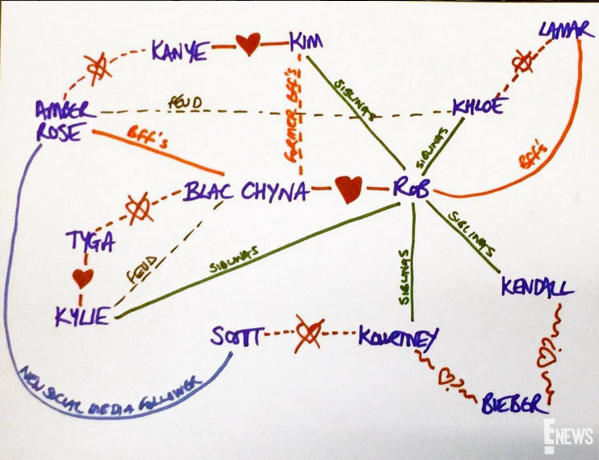 LAMAR
KANYE
KIM
AMBER
ROSE
FEUD
KHLOE
SIBLINGS
FORMER BFF'S
SIBLINGS
BFF'S
BFF'S
BLAC CHYNA
ROB
TYGA
FEUD
SIBLINGS
SIBLINGS
SIBLINGS
KENDALL
KYLIE
SCOTT
KOURTNEY
?
?
NEW SOCIAL MEDIA FOLLOWER
BIEBER
E! NEWS